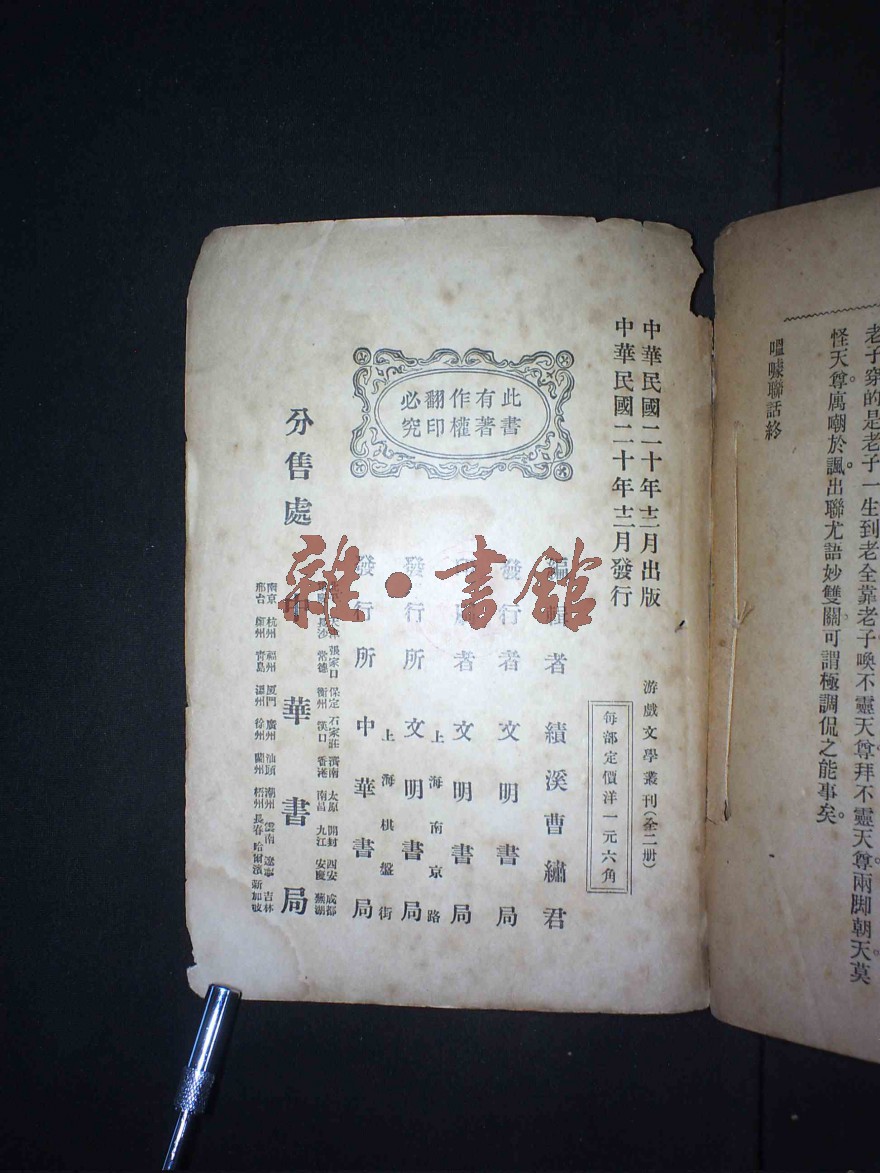 老子穿的是老子一生到老全靠老子喚不靈天尊拜不靈天尊兩脚朝天莫
怪天尊厲嘲於諷出聯尤語妙雙關可謂極調侃之能事矣。
嗢噱聯話終
中華民國二十年十二月出版
中華民國二十年十二月發行
游戲文學叢刊(全二册)
每部定價洋一元六角
此書
有著
作權
翻印
必究
編輯者 績溪曹繡君
發行者 文明書局
者 文明書局
上海南京路
發行所 文明書局
上海棋盤街
發行所 中華書局
分售處 中華書局
張家口 保定 石家莊 濟南 太原 開封 西安 成都
長沙 常德 衡州 漢口 香港 南昌 九江 安慶 蕪湖
南京 杭州 福州 厦門 廣州 汕頭 潮州 雲南 遼寧 吉林
邢台 鄭州 青島 溫州 徐州 蘭州 梧州 長春 哈爾濱 新加坡
雜·書館